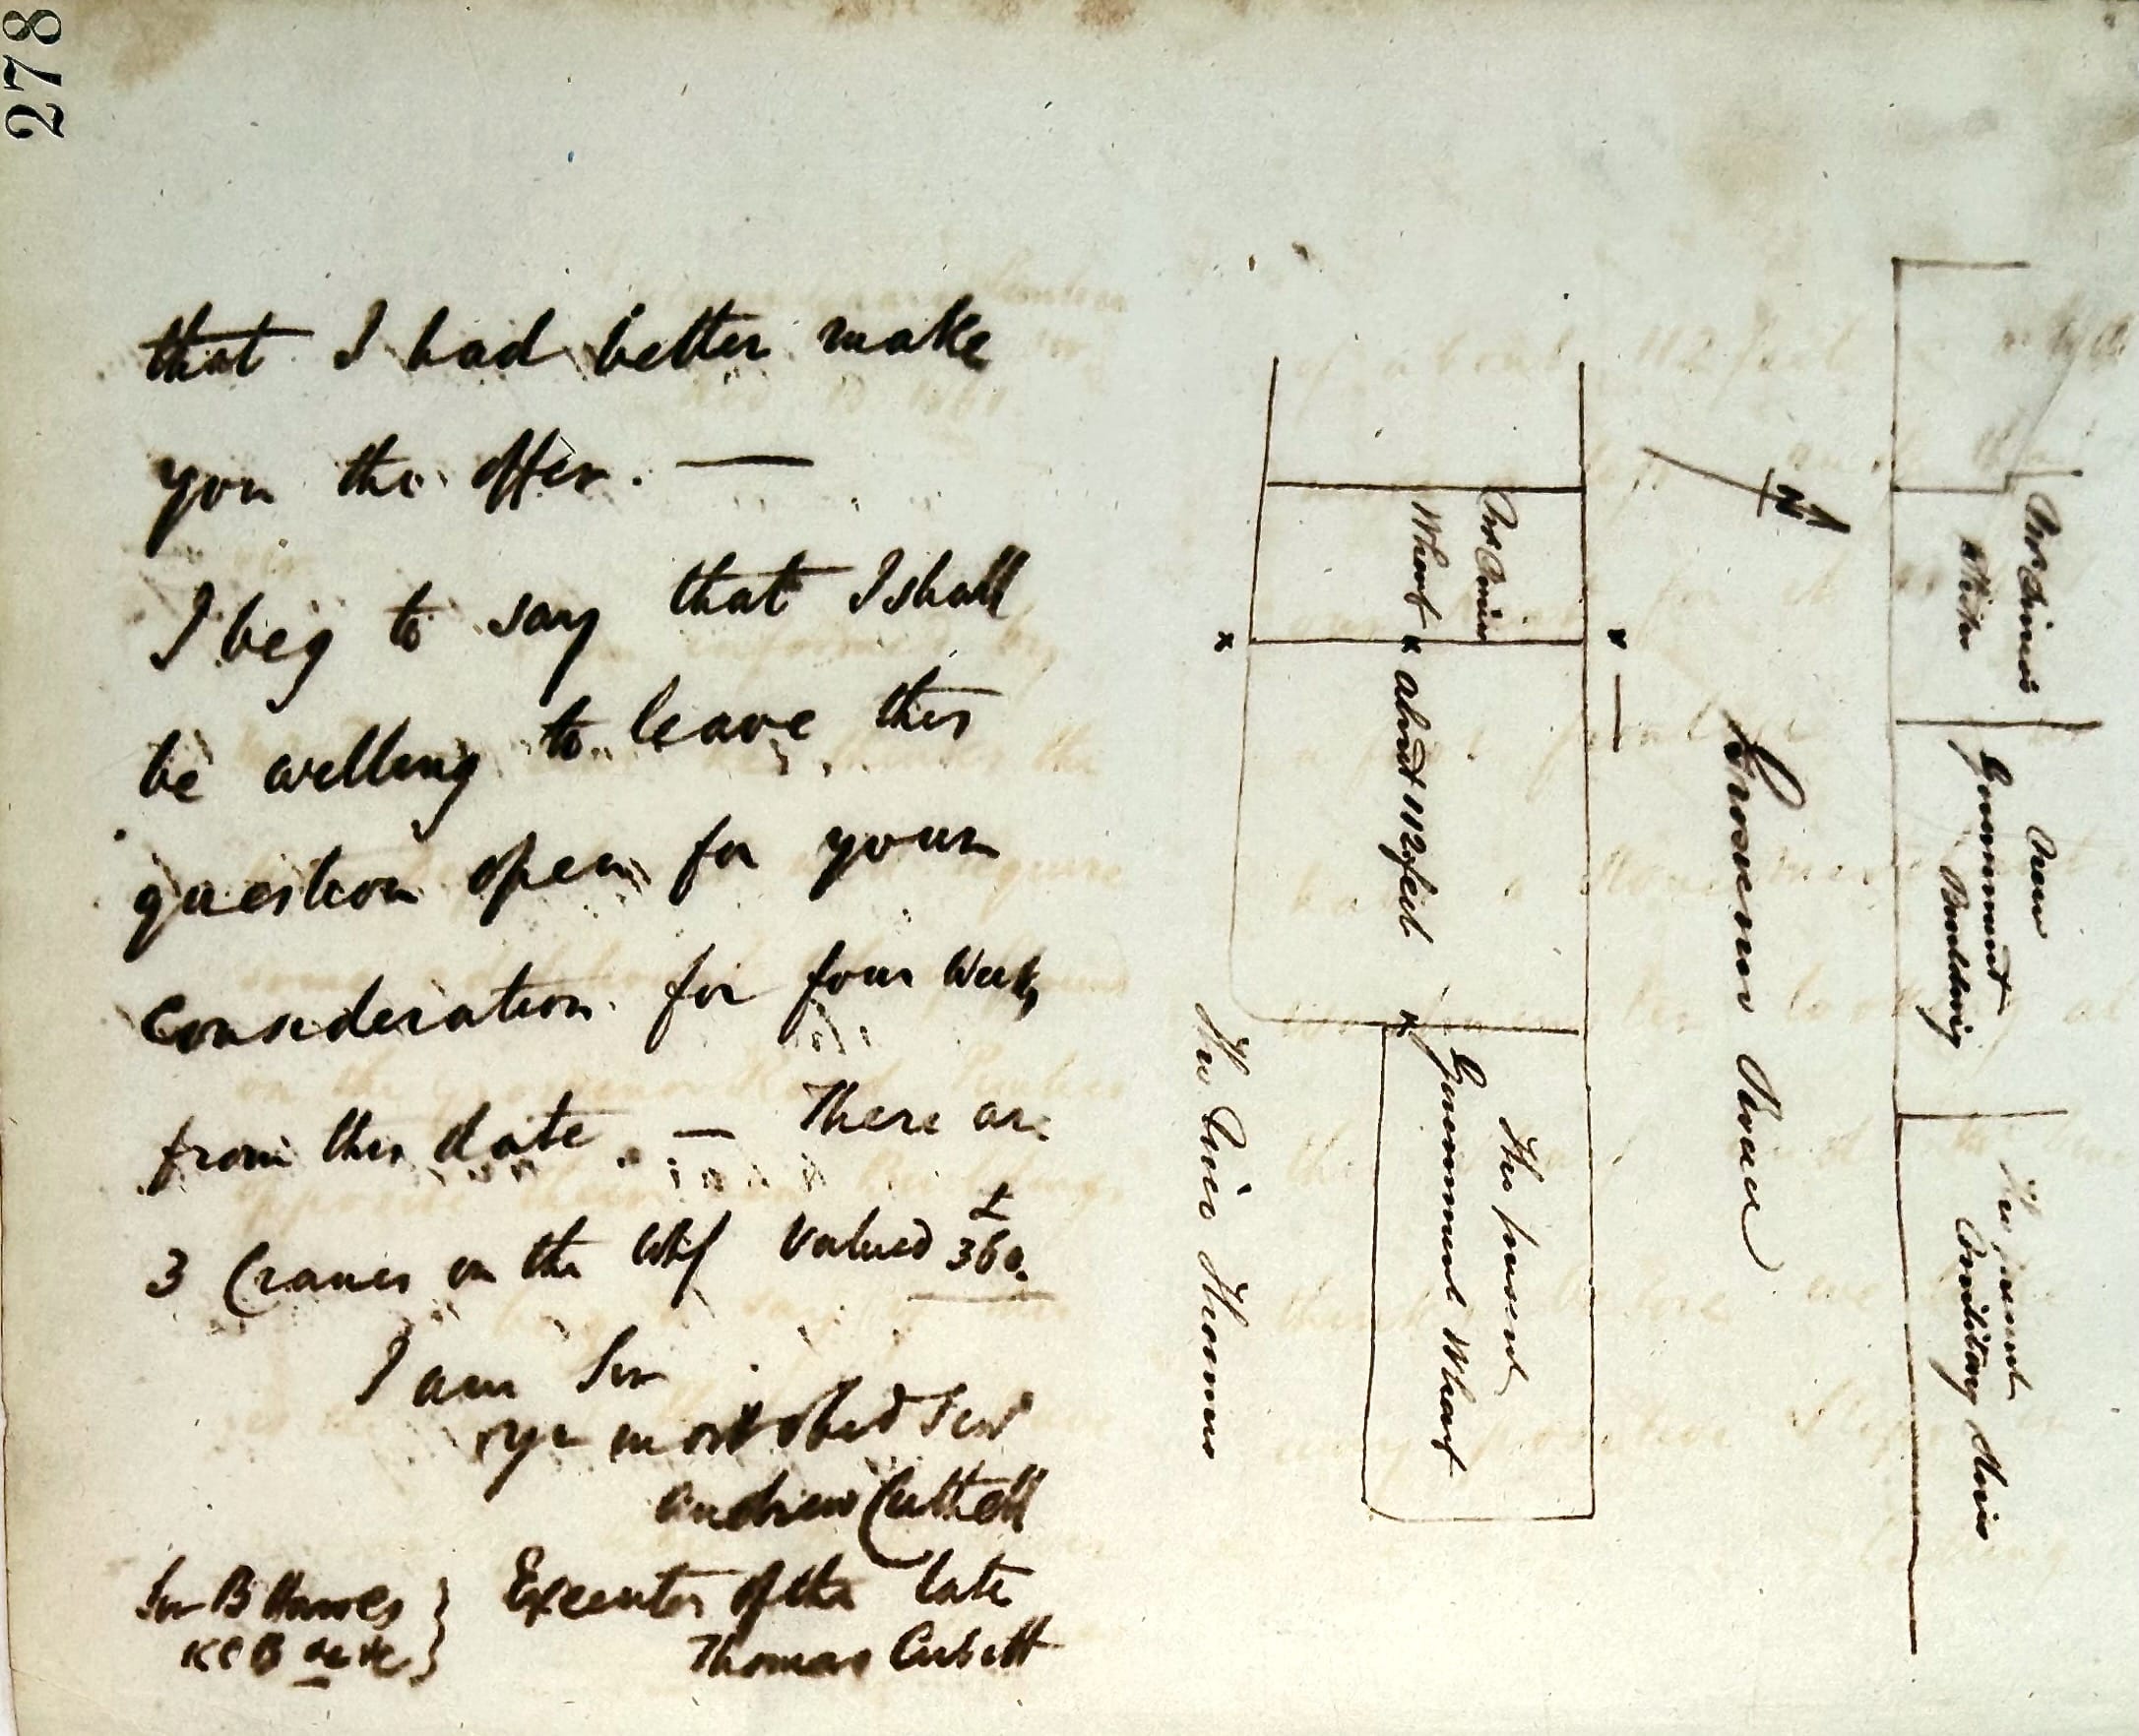 278
that I had better make
you the offer. —
I beg to say that I shall
be willing to leave this
question open for your
Consideration for four Weeks
from this date. — There are
3 Cranes on the Whf Valued £360.
I am Sir
yr most obed Servt
Andrew Cuthell
Executor of the late
Thomas Cubitt
Sir B Hawes
KCB &c &c
Wharf
about 112 feet
The present
Government Wharf
The River Thames
N
Grosvenor Road
New
Government
Building
The present